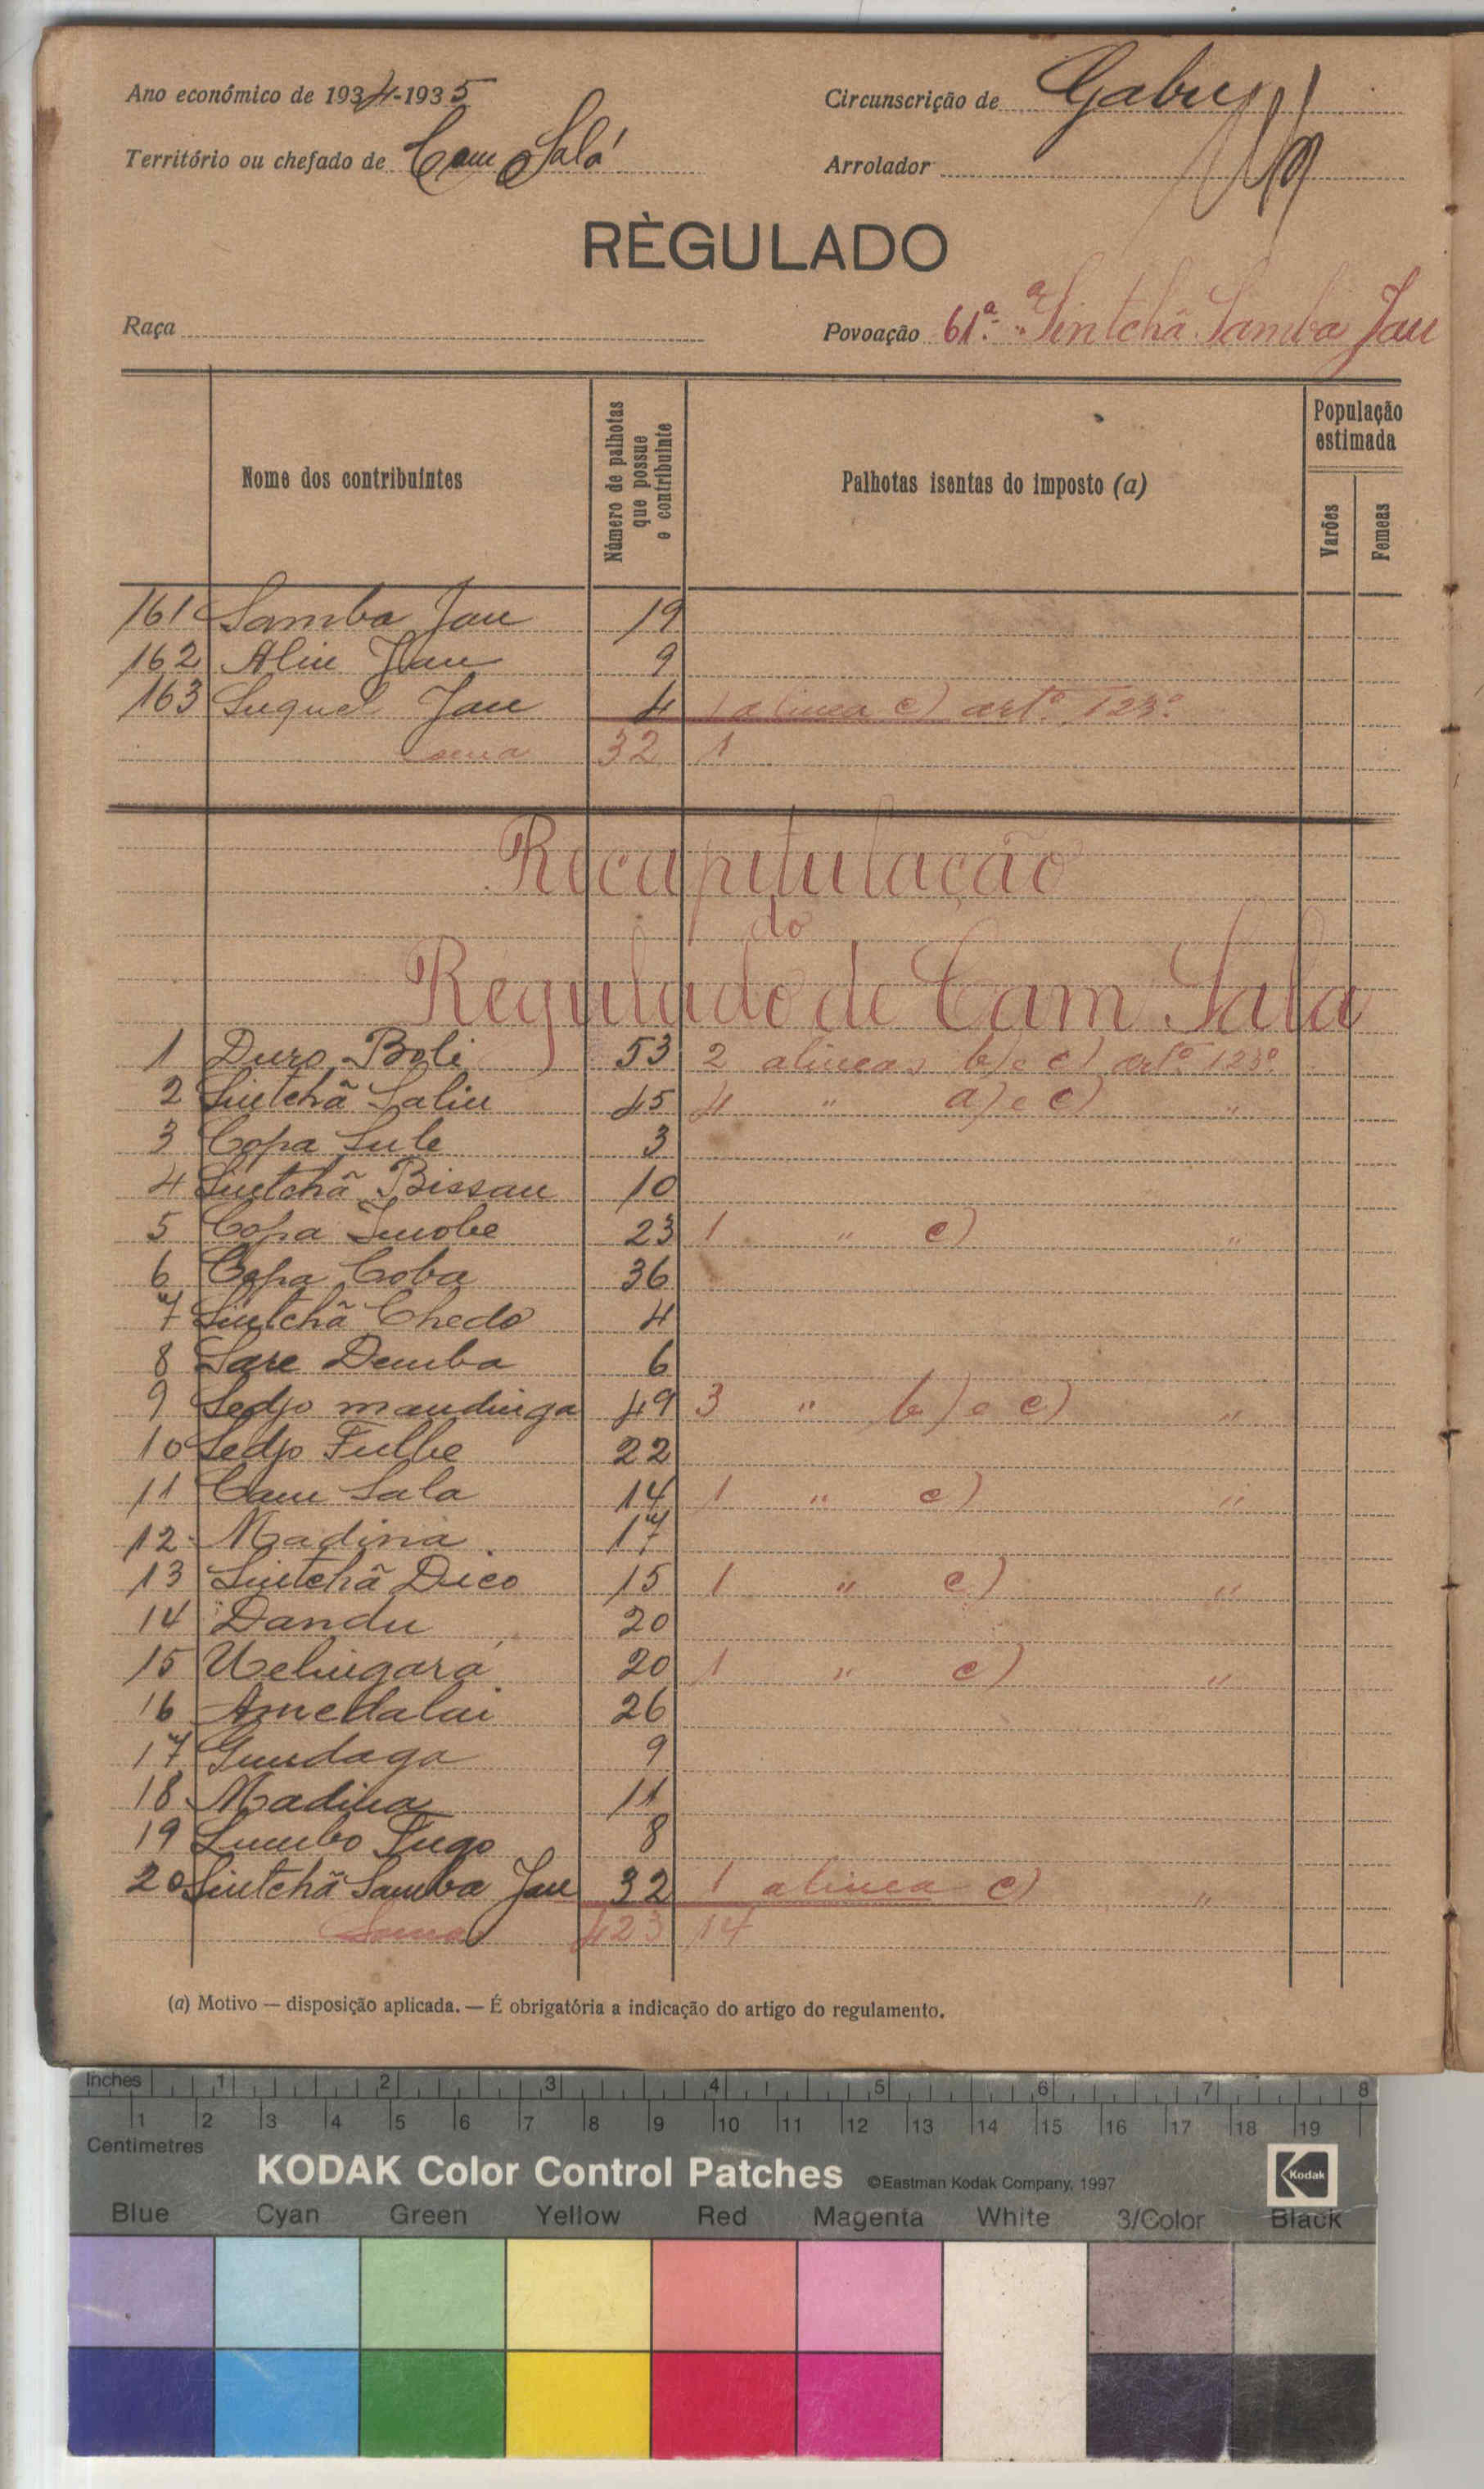 Ano económico de 1934-1935
Circunscrição de Gabu
Território ou chefado de Cam Salá
Arrolador
RÈGULADO
Raça
Povoação 61ª - Sintchã Samba Jau
Nome dos contribuintes
Número de palhotas que possue o contribuinte
Palhotas isentas do imposto (a)
População estimada
Varões
Femeas
161 Samba Jau 19
162 Aliu Jau 9
163 Suquel Jau 4 1 alinea c) artº 123º
soma 32 1
Recapitulação
do
Regulado de Cam Sala
1 Duro Boli 53 2 alineas b) e c) artº 123º
2 Sintchã Saliu 45 4 " a) e c) "
3 Copa Sule 3
4 Sintchã Bissau 10
5 Copa 23 1 " c) "
6 Copa Coba 36
7 Sintchã Chedo 4
8 Sare Demba 6
9 Sedjo mandinga 49 3 " b) e c) "
10 Sedjo Fulbe 22
11 Cam Sala 14 1 " c) "
12 Madina 17
13 Sintchã Dico 15 1 " c) "
14 Dandu 20
15 Uelingará 20 1 " c) "
16 Amedalai 26
17 Gundaga 9
18 Madina 11
19 Lumbo 8
20 Sintchã Samba Jau 32 1 alinea c) "
Soma 423 14
(a) Motivo — disposição aplicada. — É obrigatória a indicação do artigo do regulamento.
Inches 1 2 3 4 5 6 7 8
1 2 3 4 5 6 7 8 9 10 11 12 13 14 15 16 17 18 19
Centimetres
KODAK Color Control Patches ©Eastman Kodak Company, 1997 Kodak
Blue Cyan Green Yellow Red Magenta White 3/Color Black